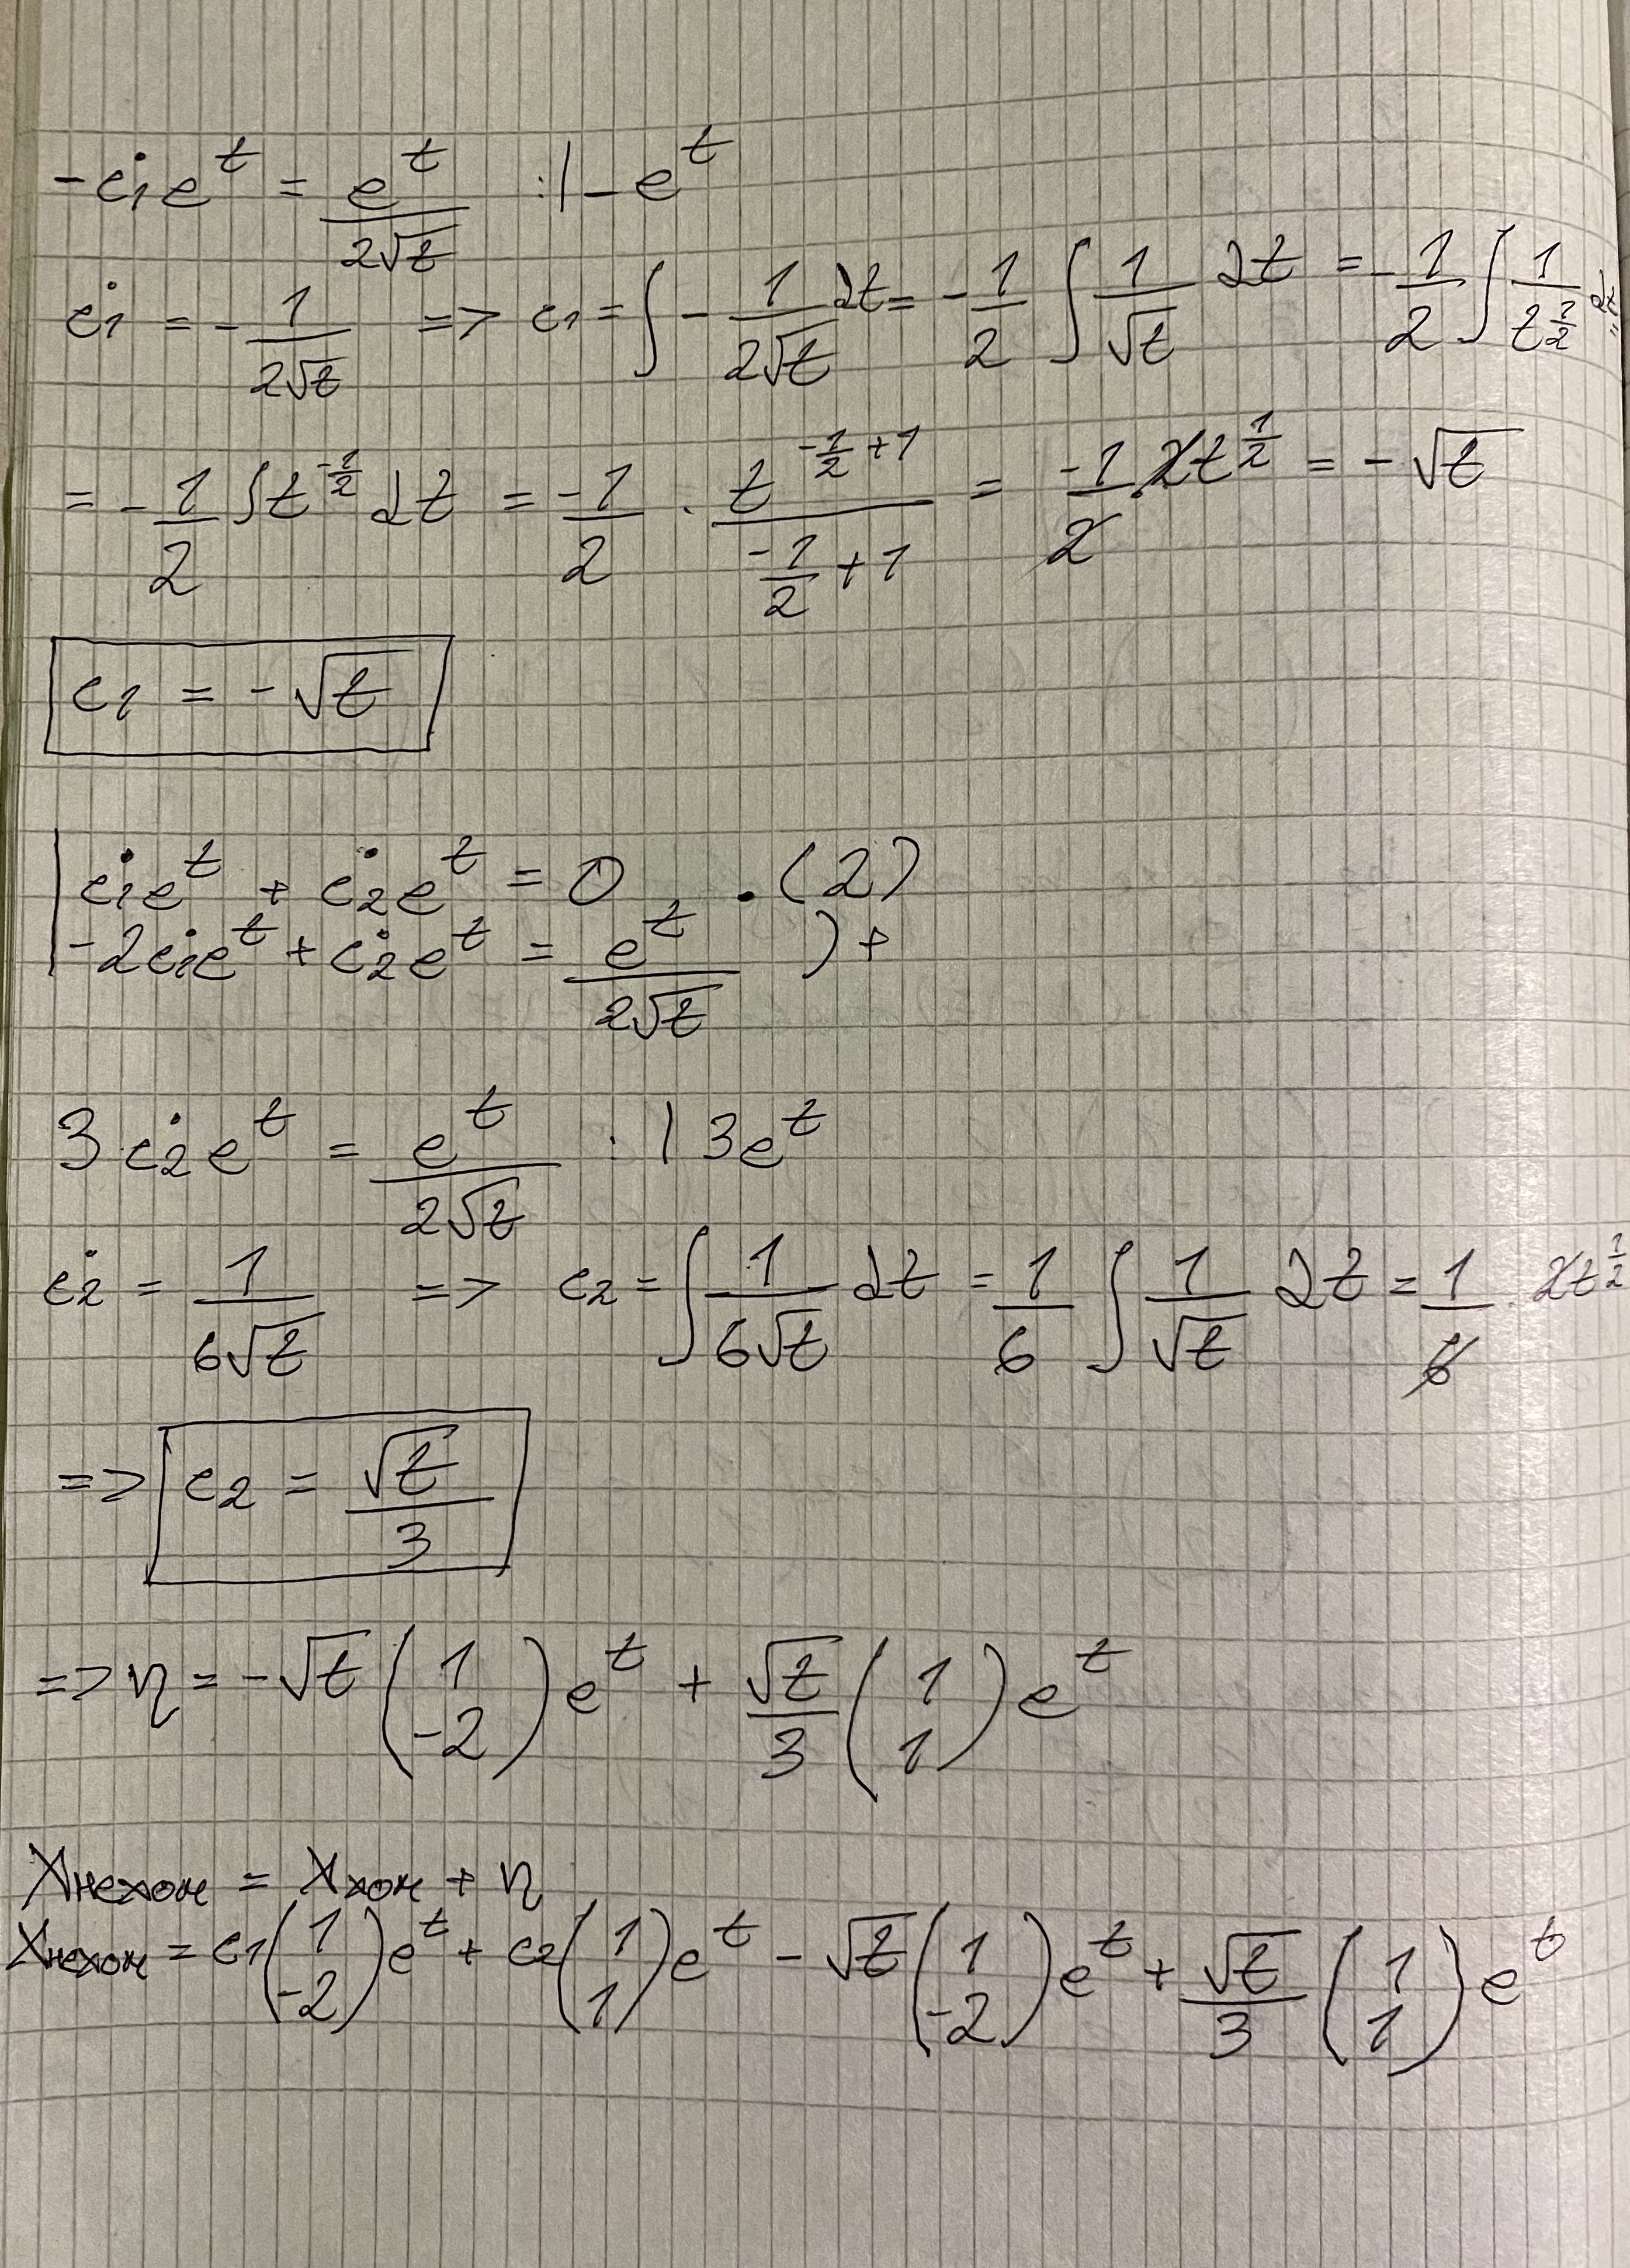 -ċ₁e^t = e^t/(2√t) :|-e^t
ċ₁ = -1/(2√t) => c₁ = ∫ -1/(2√t) dt = -1/2 ∫ 1/√t dt = -1/2 ∫ 1/t^(1/2) dt =
= -1/2 ∫t^(-1/2) dt = -1/2 · t^(-1/2+1)/(-1/2+1) = -1/2 · 2t^(1/2) = -√t
c₁ = -√t
| ċ₁e^t + ċ₂e^t = 0 ·(2)
| -2ċ₁e^t + ċ₂e^t = e^t/(2√t) )+
3ċ₂e^t = e^t/(2√t) :| 3e^t
ċ₂ = 1/(6√t) => c₂ = ∫ 1/(6√t) dt = 1/6 ∫ 1/√t dt = 1/6 · 2t^(1/2)
=> c₂ = √t/3
=> η = -√t (1 -2) e^t + √t/3 (1 1) e^t
Xнехом = Xхом + η
Xнехом = c₁(1 -2)e^t + c₂(1 1)e^t - √t(1 -2)e^t + √t/3 (1 1) e^t